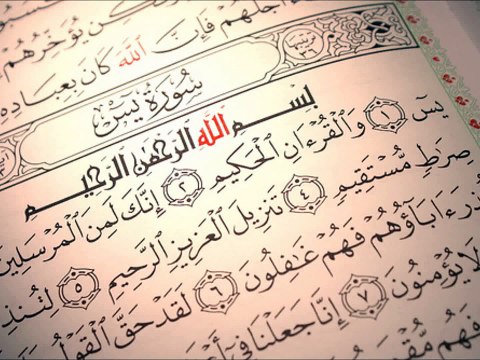 أَجَلُهُمْ فَإِنَّ ٱللَّهَ كَانَ بِعِبَادِهِ
سُورَةُ يسٓ
بِسْمِ ٱللَّهِ ٱلرَّحْمَٰنِ ٱلرَّحِيمِ
يسٓ ١ وَٱلْقُرْءَانِ ٱلْحَكِيمِ ٢ إِنَّكَ لَمِنَ ٱلْمُرْسَلِينَ
صِرَٰطٍ مُّسْتَقِيمٍ ٤ تَنزِيلَ ٱلْعَزِيزِ ٱلرَّحِيمِ ٥ لِتُنذِ
ءَابَآؤُهُمْ فَهُمْ غَٰفِلُونَ ٦ لَقَدْ حَقَّ ٱلْقَوْلُ
لَا يُؤْمِنُونَ ٧ إِنَّا جَعَلْنَا فِىٓ
فَهُم